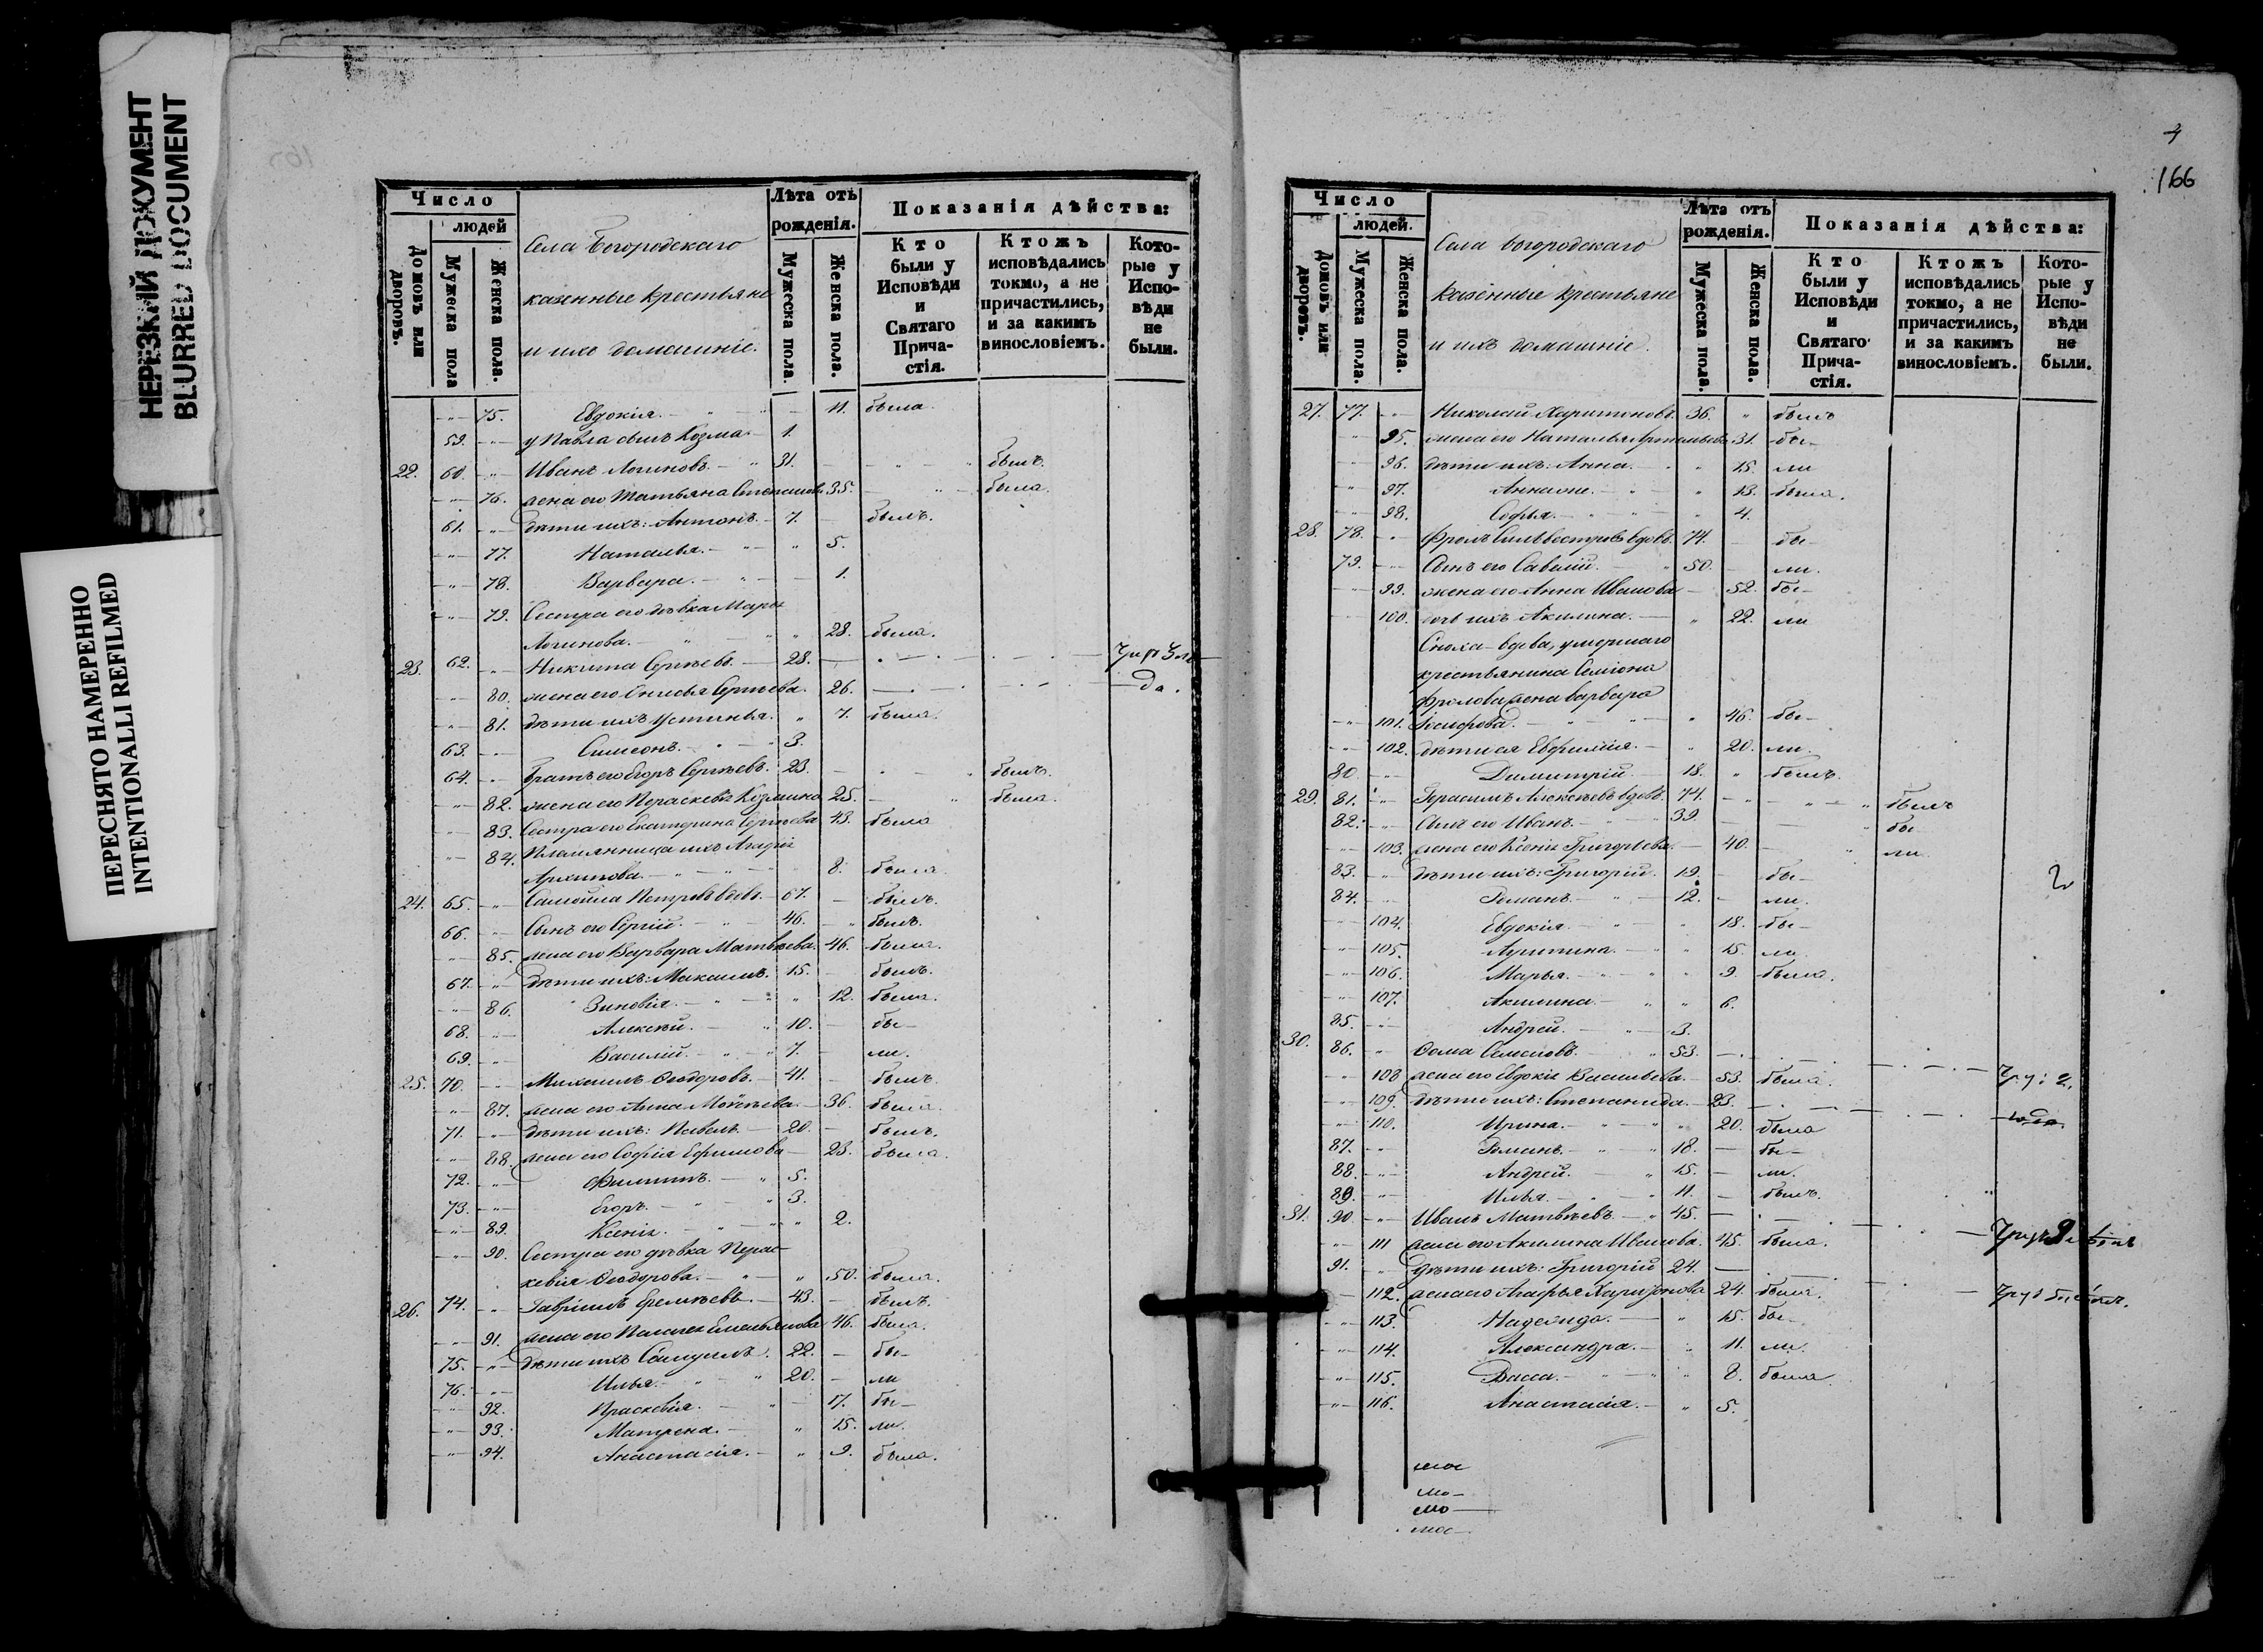 НЕРЕЗКИЙ ДОКУМЕНТ
BLURRED DOCUMENT
ПЕРЕСНЯТО НАМЕРЕННО
INTENTIONALLI REFILMED
Число
людей
Домовъ или дворовъ.
Мужеска пола
Женска пола.
Села Богородскаго
казенные крестьяне
и ихъ домашніе.
Лѣта отъ рожденія.
Мужеска пола.
Женска пола.
Показанія дѣйства:
Кто были у Исповѣди и Святаго Причастія.
Ктожъ исповѣдались токмо, а не причастились, и за какимъ винословіемъ.
Которые у Исповѣди не были.
75. Евдокія. 11. была.
59. у Павла сынъ Козма. 1.
22. 60. Иванъ Логиновъ. 31. былъ.
76. жена его Татьяна 35. была.
61. дѣти ихъ: Антонъ. 7. былъ.
77. Наталья. 5.
78. Варвара. 1.
79. Сестра его дѣвка Марья
Логинова. 28. была.
23. 62. Никита Сергѣевъ. 28.
80. жена его Сергѣева. 26.
81. дѣти ихъ Устинья. 7. была.
63. Симеонъ. 3.
64. братъ его Егоръ Сергѣевъ. 23. былъ.
82. жена его Параскева Козмина 25. была.
83. Сестра его Екатерина Сергѣева 43. была
84. Племянница ихъ
Архипова. 8. была.
24. 65. Самойла Петровъ вдовъ. 67. былъ.
66. Сынъ его Сергій. 46. былъ.
85. жена его Варвара Матвѣева. 46. была.
67. дѣти ихъ: Максимъ. 15. былъ.
86. Зиновія. 12. была.
68. Алексѣй. 10. бы-
69. Василій. 7. ли.
25. 70. Михаилъ Ѳеодоровъ. 41. былъ.
87. жена его Анна 36. была.
71. дѣти ихъ: Павелъ. 20. былъ.
88. жена его Софія Ефимова 23. была.
72. Филиппъ. 5.
73. Егоръ. 3.
89. Ксенія. 2.
90. Сестра его дѣвка Парас-
кевія Ѳеодорова. 50. была.
26. 74. Гавріилъ Еремѣевъ. 43. былъ.
91. жена его Пелагея Емельянова 46. была.
75. дѣти ихъ Самуилъ. 22. бы-
76. Илья. 20. ли
92. Праскевія. 17. бы-
93. Матрена. 15. ли.
94. Анастасія. 9. была.
4
166
Число
людей.
Домовъ или дворовъ.
Мужеска пола.
Женска пола.
Села Богородскаго
казенные крестьяне
и ихъ домашніе.
Лѣта отъ рожденія.
Мужеска пола.
Женска пола.
Показанія дѣйства:
Кто были у Исповѣди и Святаго Причастія.
Ктожъ исповѣдались токмо, а не причастились, и за какимъ винословіемъ.
Которые у Исповѣди не были.
27. 77. Николай Харитоновъ. 36. былъ
95. жена его Наталья 31. бы-
96. дѣти ихъ: Анна. 15. ли
97. Анна 13. была.
98. Софья. 4.
28. 78. Фролъ Сильвестровъ вдовъ. 74. бы-
79. Сынъ его Савелій. 50. ли.
99. жена его Анна Иванова 52. бы-
100. дочь ихъ Акилина. 22. ли
Сноха вдова, умершаго
крестьянина Семіона
Фролова жена Варвара
101. Іосифова. 46. бы-
102. дѣти ея Евфимія. 20. ли.
80. Димитрій. 18. былъ.
29. 81. Герасимъ Алексѣевъ вдовъ. 74. былъ
82. Сынъ его Иванъ. 39. бы
103. жена его Ксенія Григорьева. 40. ли.
83. дѣти ихъ: Григорій. 19. бы-
84. Романъ. 12. ли.
104. Евдокія. 18. бы-
105. 15. ли.
106. Марья. 9. была.
107. Акилина. 6.
85. Андрей. 3.
30. 86. Ѳома Семеновъ. 53.
108 жена его Евдокія Васильева. 53. была.
109. дѣти ихъ: Степанида. 23.
110. Ирина. 20. была
87. Романъ. 18. бы-
88. Андрей. 15. ли.
89. Илья. 11. былъ.
31. 90 Иванъ Матвѣевъ. 45.
111 жена его Акилина Иванова. 45. была.
91. дѣти ихъ: Григорій 24.
112. жена его Агафья Харитонова 24. была.
113. Надежда. 15. бы-
114. Александра. 11. ли.
115. Васса. 8. была.
116. Анастасія. 5.